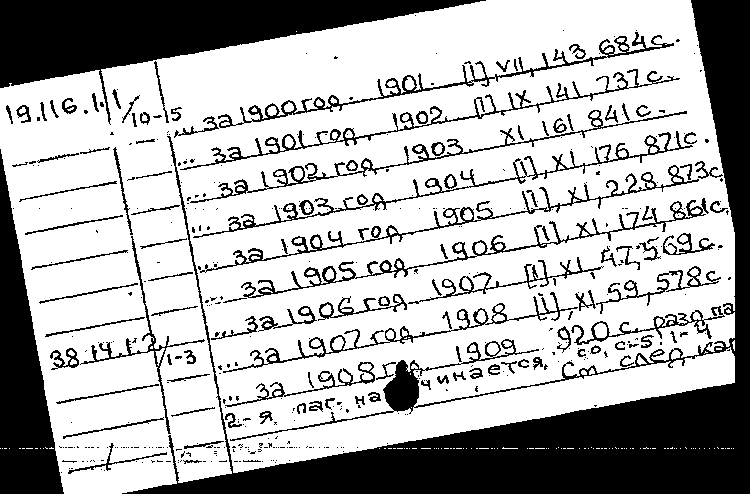 19.116.1.1/10-15 ... за 1900 год. 1901. [I], VII, 143, 684 с.
... за 1901 год. 1902. [I], IX, 141, 737 с.
... за 1902 год. 1903. XI, 161, 841 с.
... за 1903 год. 1904 [I], XI, 176, 871 с.
... за 1904 год. 1905 [I], XI, 228, 873 с.
... за 1905 год. 1906 [I], XI, 174, 861 с.
... за 1906 год. 1907. [I], XI, 47, 569 с.
... за 1907 год. 1908 [I], XI, 59, 578 с.
38.14.1.2/1-3 ... за 1908 год 1909 920 с. разд. па
2-я паг. начинается со с. 5
См. след. кар